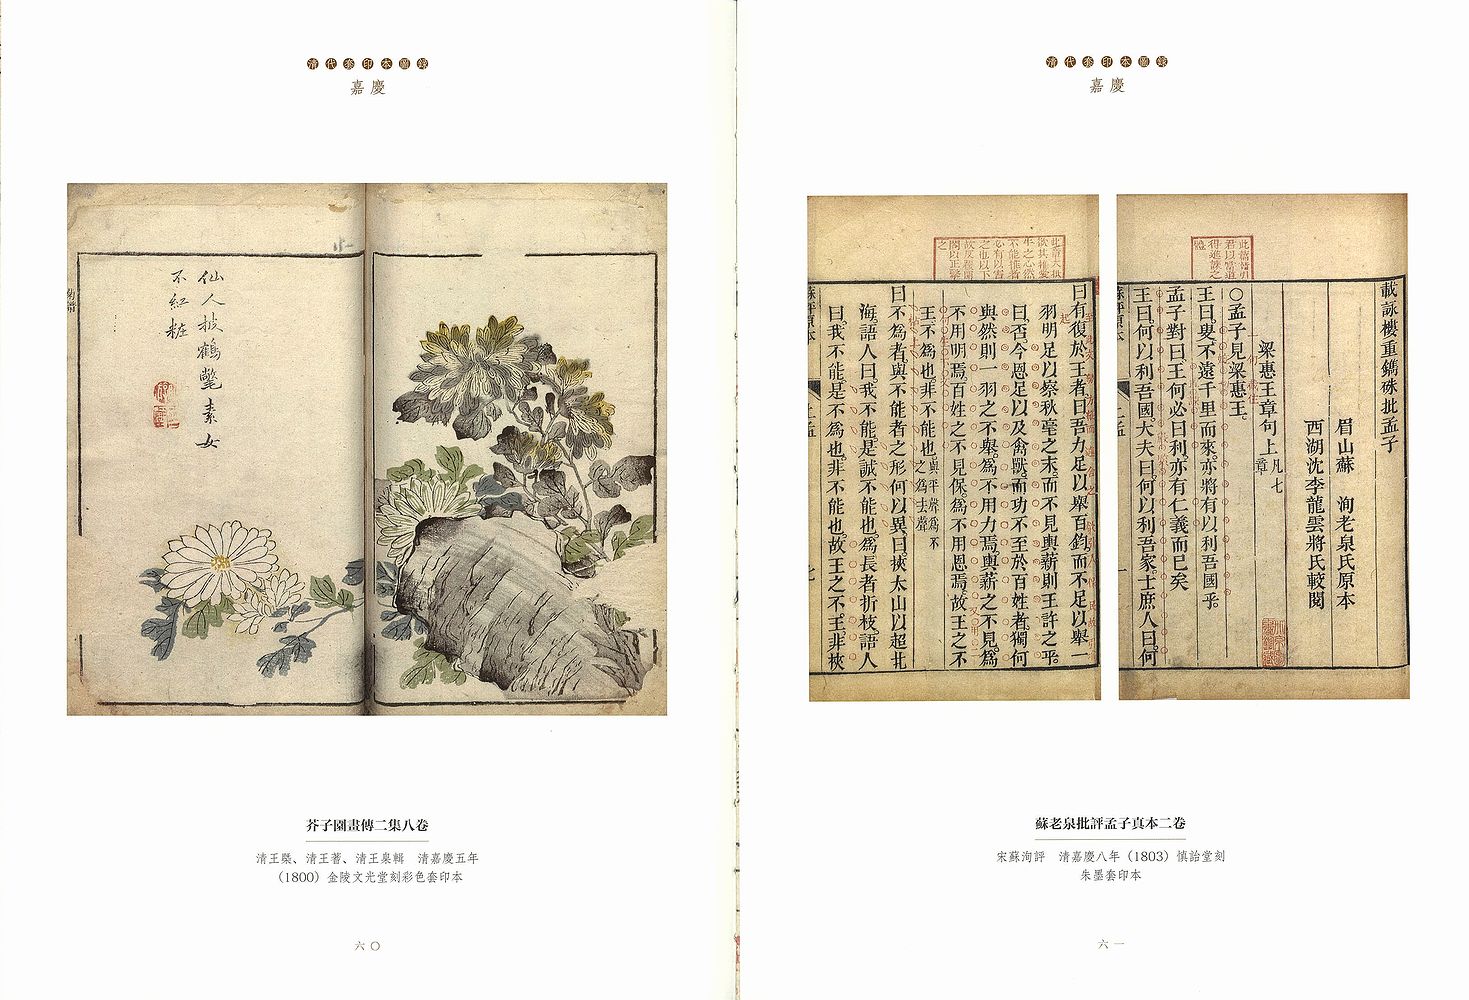 清代套印本圖錄
嘉慶
仙人披鶴氅素女
不紅粧
芥子園畫傳二集八卷
清王槩、清王蓍、清王臬輯　清嘉慶五年
（1800）金陵文光堂刻彩色套印本
六〇
清代套印本圖錄
嘉慶
載詠樓重鐫硃批孟子
眉山蘇　洵老泉氏原本
西湖沈李龍雲將氏較閱
梁惠王章句上凡七章
〇孟子見梁惠王。
王曰。叟不遠千里而來。亦將有以利吾國乎。
孟子對曰。王何必曰利。亦有仁義而已矣
王曰。何以利吾國。大夫曰。何以利吾家。士庶人曰。何
曰有復於王者曰。吾力足以舉百鈞。而不足以舉一
羽。明足以察秋毫之末。而不見輿薪。則王許之乎。
曰。否。今恩足以及禽獸。而功不至於百姓者。獨何
與。然則一羽之不舉。爲不用力焉。輿薪之不見。爲
不用明焉。百姓之不見保。爲不用恩焉。故王之不
王。不爲也。非不能也。與平聲爲不之爲去聲
曰。不爲者。與不能者之形何以異。曰。挾太山以超北
海。語人曰。我不能。是誠不能也。爲長者折枝。語人
曰。我不能。是不爲也。非不能也。故王之不王。非挾
蘇老泉批評孟子真本二卷
宋蘇洵評　清嘉慶八年（1803）慎詒堂刻
朱墨套印本
六一